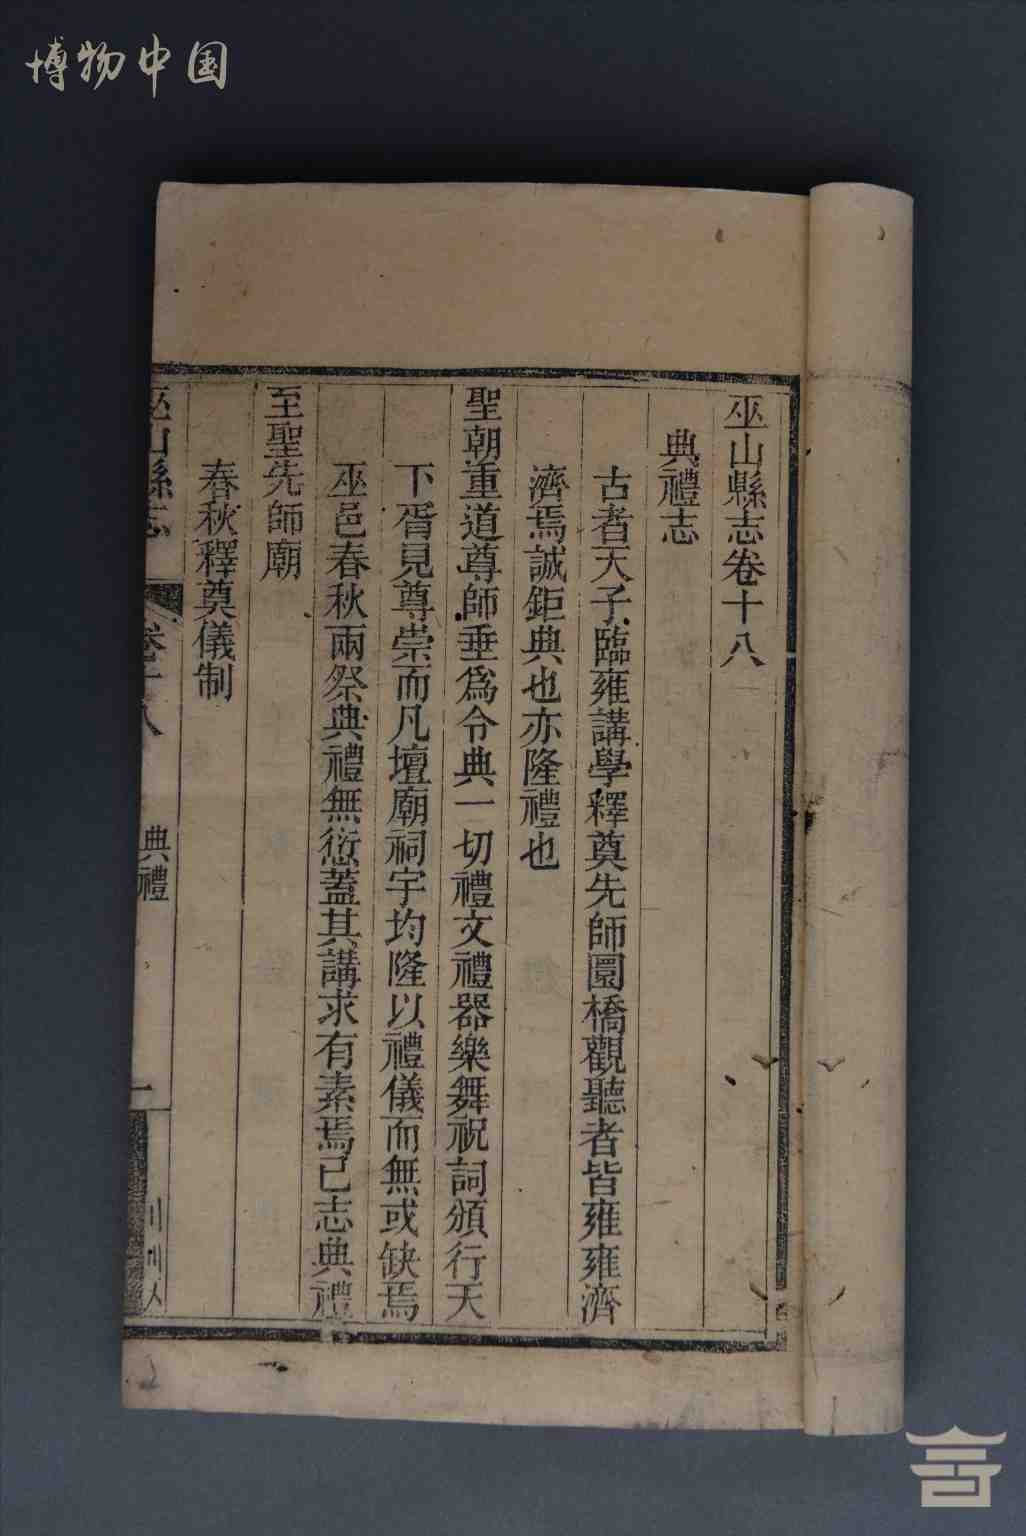 博物中国
巫山縣志卷十八
典禮志
古者天子臨雍講學釋奠先師圜橋觀聽者皆雍雍濟
濟焉誠鉅典也亦隆禮也
聖朝重道尊師垂為令典一切禮文禮器樂舞祝詞頒行天
下胥見尊崇而凡壇廟祠宇均隆以禮儀而無或缺焉
巫邑春秋兩祭典禮無愆蓋其講求有素焉己志典禮
至聖先師廟
春秋釋奠儀制
巫山縣志 卷十八 典禮 一